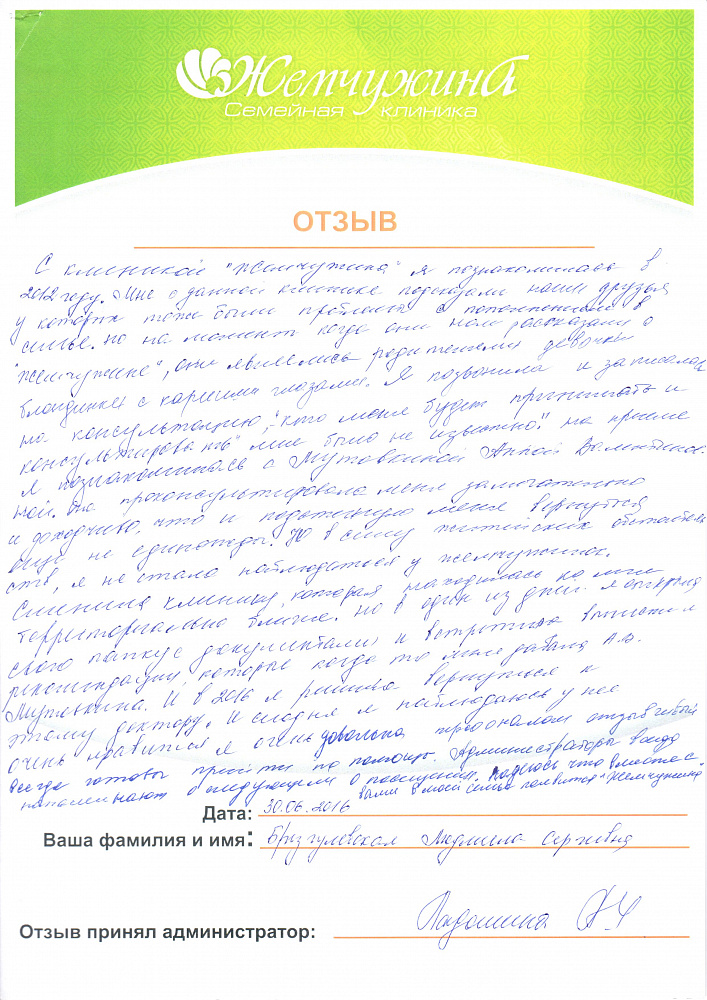 Жемчужина
Семейная клиника
ОТЗЫВ
С клиникой "Жемчужина" я познакомилась в
2012 году. Мне о данной клинике подсказали наши друзья
у которых тоже были проблемы с пополнением в
семье. но на момент когда они нам рассказали о
"Жемчужине", они являлись родителями девочки
блондинки с карими глазами. Я позвонила и записалась
на консультацию, "кто меня будет принимать и
консультировать" мне было не известно!! на приеме
я познакомилась с Мутовкиной Анной Валентинов-
ной. Она проконсультировала меня замечательно
и доходчиво, что и подтолкнуло меня вернуться
еще не единожды. Но в силу житейских обстоятель
ств, я не стала наблюдаться у жемчужины.
Сменила клинику, которая находилась ко мне
территориально ближе. Но в один из дней я открыла
свою папку с документами и встретила выписки и
рекомендации, которые когда то мне давала А.В.
Мутовкина. И в 2016 я решила вернуться к
этому доктору. И сегодня я наблюдаюсь у нее
очень нравится я очень довольна персоналом отзывчивый
всегда готовы прийти на помощь. Администраторы всегда
напоминают о следующем посещении. Надеюсь что вместе с
вами в моей семье появится "Жемчужина"
Дата: 30.06.2016
Ваша фамилия и имя: Людмила Сергеевна
Отзыв принял администратор: